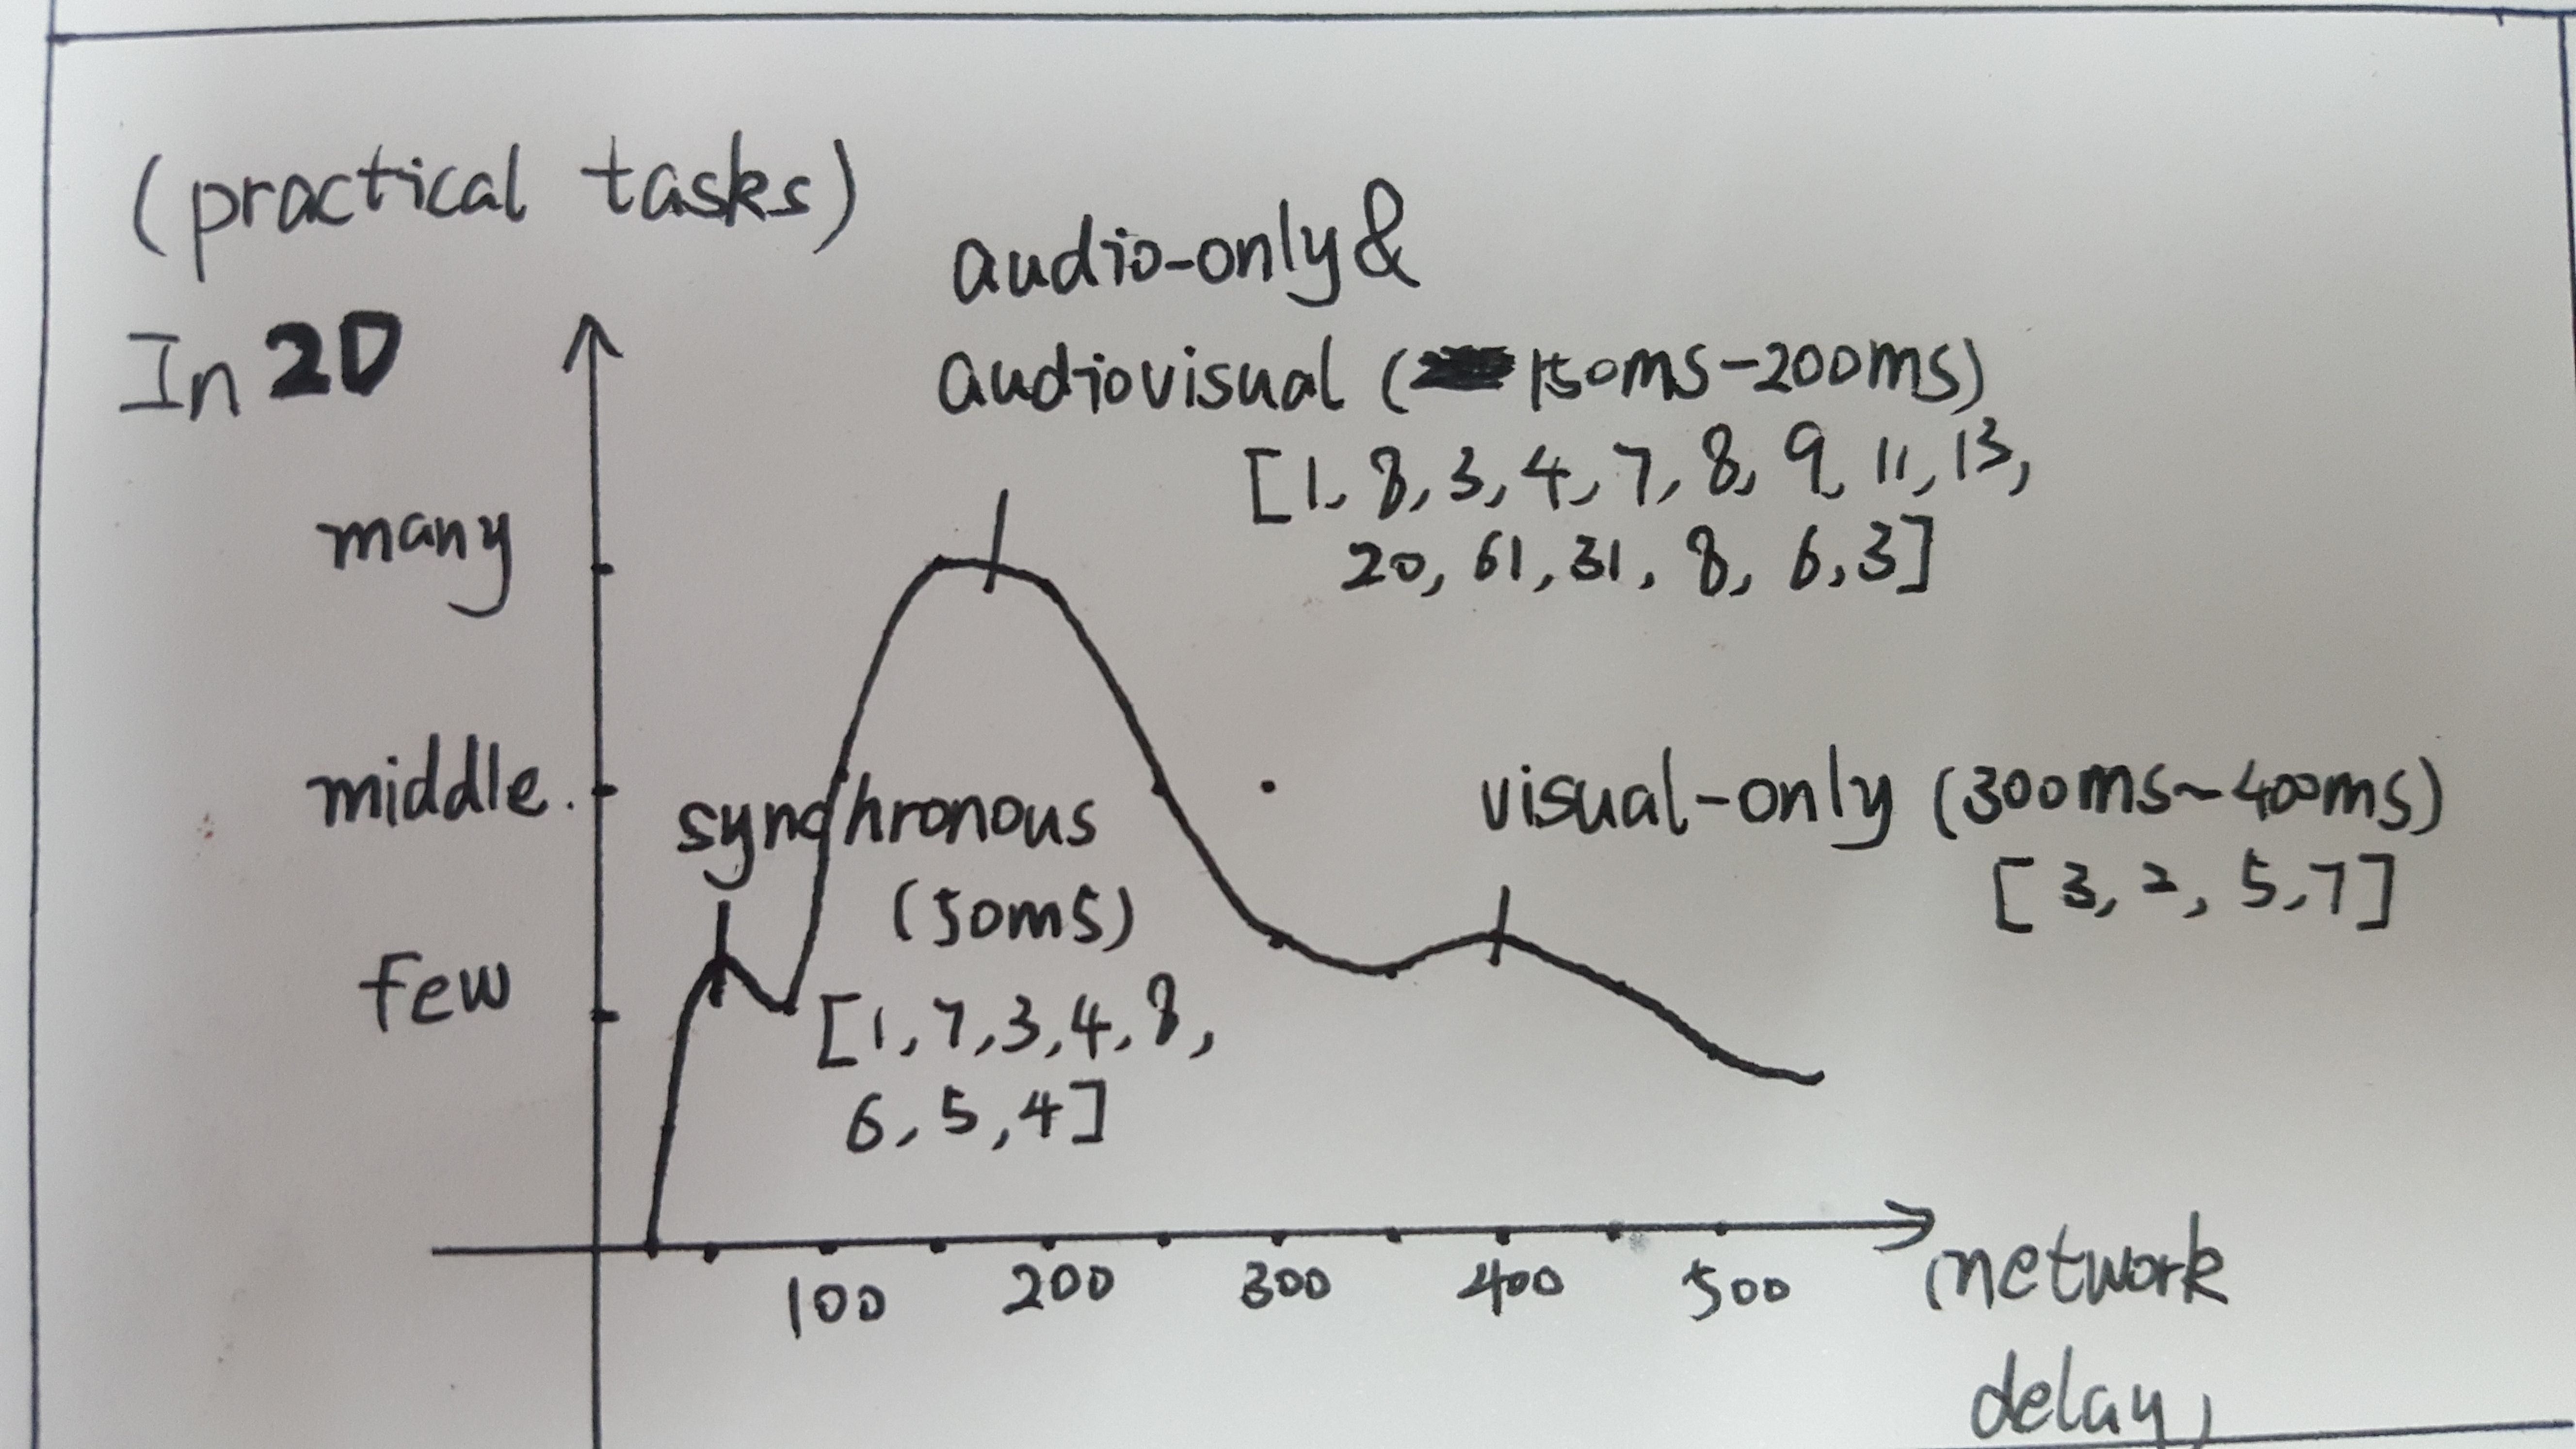 (practical tasks)
In 2D
audio-only &
audiovisual ( 150ms-200ms)
[1, 8, 3, 4, 7, 8, 9, 11, 13,
20, 61, 31, 8, 6, 3]
many
middle.
synchronous
(50ms)
[1, 7, 3, 4, 8,
6, 5, 4]
visual-only (300ms~400ms)
[3, 2, 5, 7]
few
100 200 300 400 500
network
delay